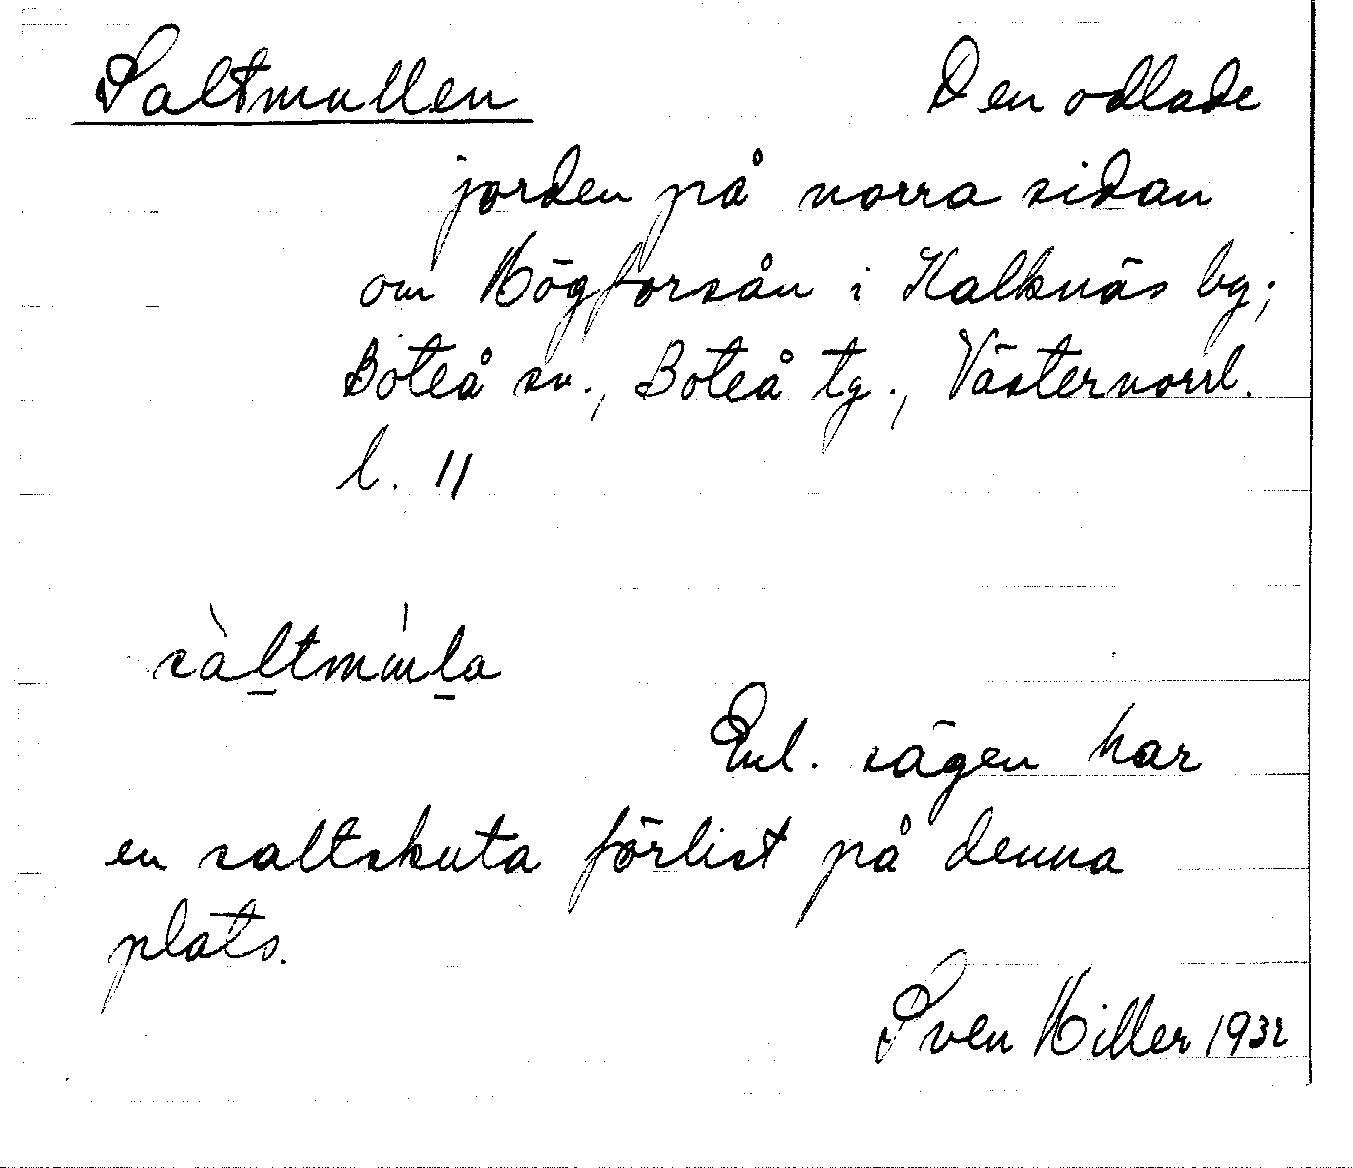 Saltmullen Den odlade
jorden på norra sidan
om Högforsån i Kalknäs by;
Boteå sn., Boteå tg., Västernorrl.
l. 11
sàltmùla
Enl. sägen har
en saltskuta förlist på denna
plats.
Sven Hiller 1932